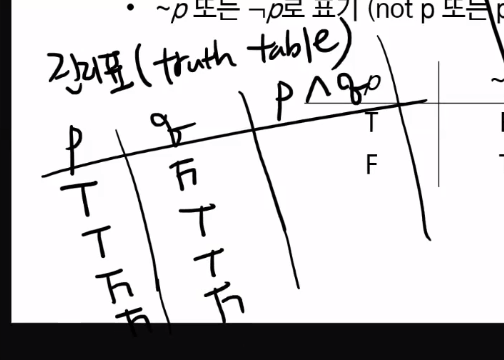 • ~p 또는 ¬p로 표기 (not p 또는 p
진리표(truth table)
p q p∧q p ~
T F T
T T F
F T
F F